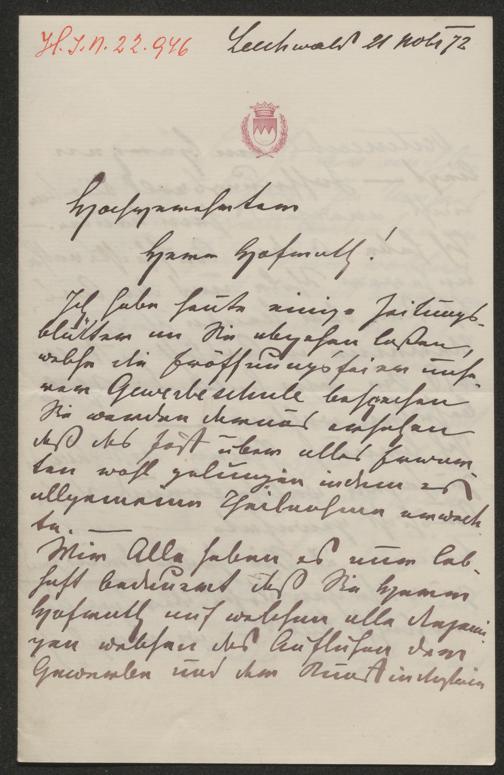 H.I.N. 22.946
Lechwald 21 Nov 72
Hochgeehrtem
Herrn Hofrath!
Ich habe heute einige Zeitungs-
blätter an Sie abgehen laßen,
welche die Eröffnungsfeier unse-
rer Gewerbeschule besprechen
Sie werden daraus ersehen
daß das Fest über alles Erwar-
ten wohl gelungen indem es
allgemeine Theilnahme erweck-
te. —
Wir Alle haben es nur leb-
haft bedauert daß Sie Herrn
Hofrath auf welchen alle diejeni-
gen welchen das Aufblühen der
Gewerbe und der Kunstindustrie